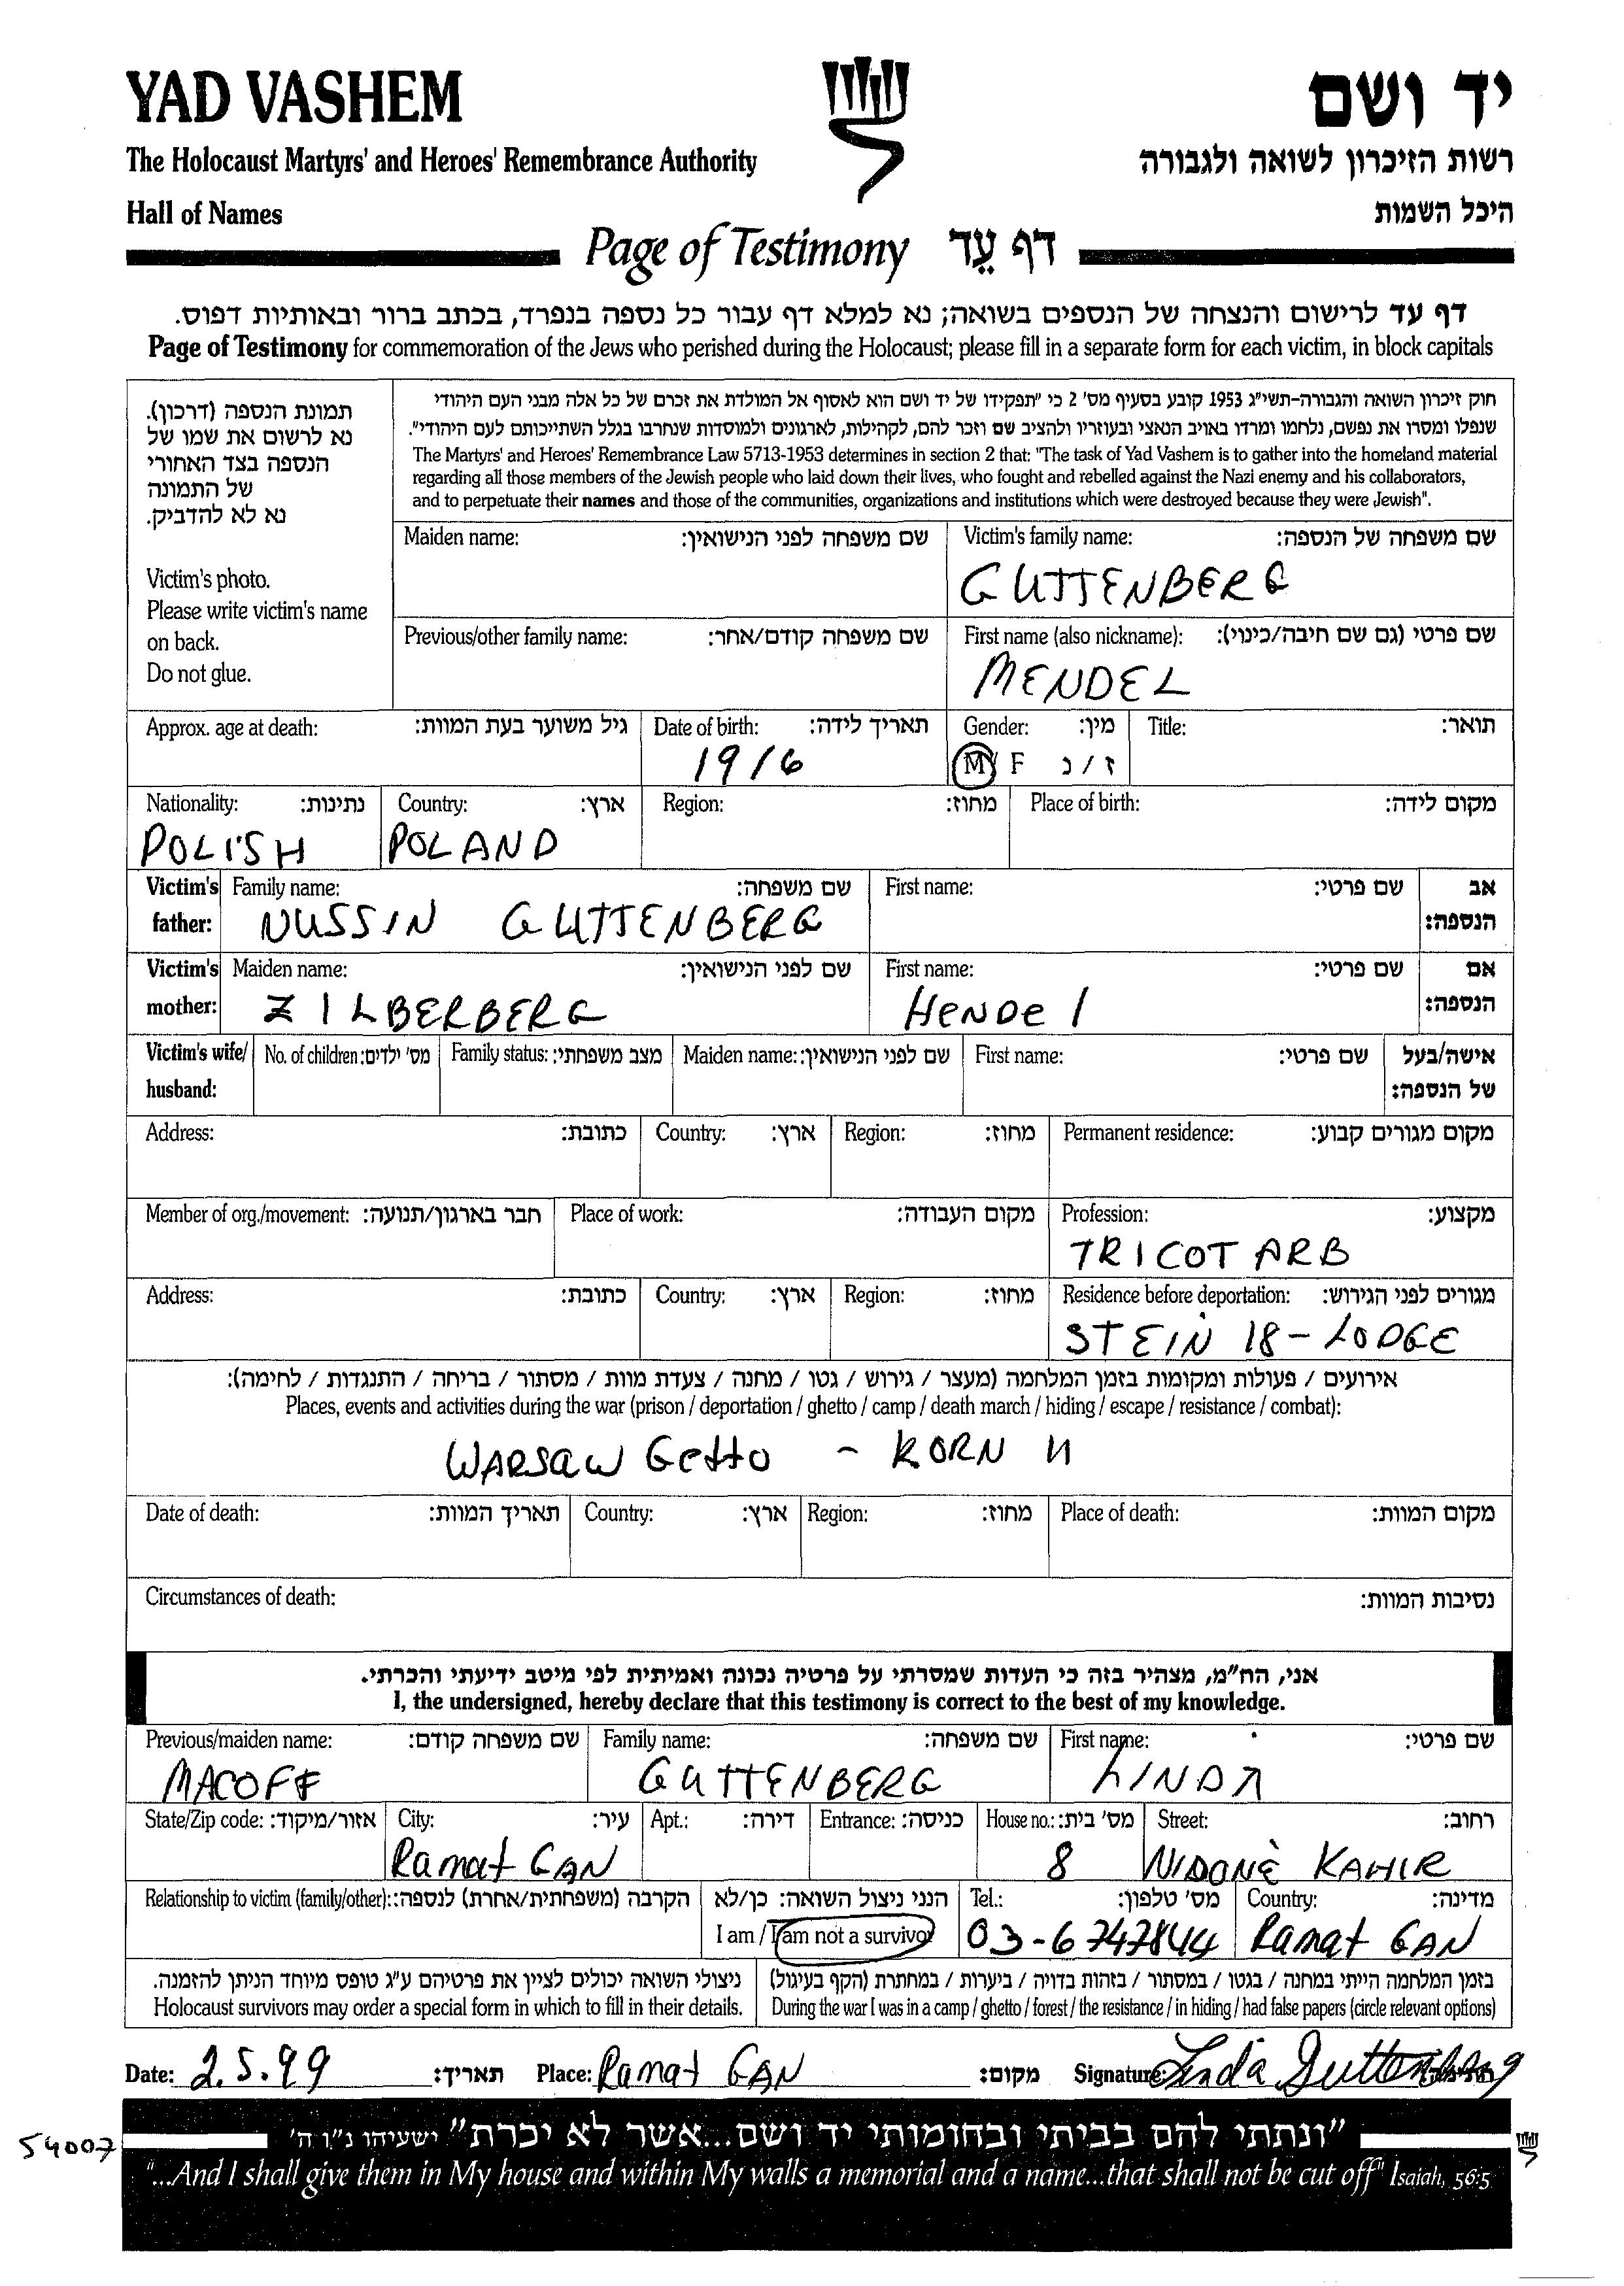 YAD VASHEM
יד ושם
The Holocaust Martyrs' and Heroes' Remembrance Authority
רשות הזיכרון לשואה ולגבורה
Hall of Names
היכל השמות
Page of Testimony דף עֵד
דף עד לרישום והנצחה של הנספים בשואה; נא למלא דף עבור כל נספה בנפרד, בכתב ברור ובאותיות דפוס.
Page of Testimony for commemoration of the Jews who perished during the Holocaust; please fill in a separate form for each victim, in block capitals
תמונת הנספה (דרכון).
נא לרשום את שמו של
הנספה בצד האחורי
של התמונה
נא לא להדביק.
Victim's photo.
Please write victim's name
on back.
Do not glue.
חוק זיכרון השואה והגבורה-תשי"ג 1953 קובע בסעיף מס' 2 כי "תפקידו של יד ושם הוא לאסוף אל המולדת את זכרם של כל אלה מבני העם היהודי
שנפלו ומסרו את נפשם, נלחמו ומרדו באויב הנאצי ובעוזריו ולהציב שם וזכר להם, לקהילות, לארגונים ולמוסדות שנחרבו בגלל השתייכותם לעם היהודי".
The Martyrs' and Heroes' Remembrance Law 5713-1953 determines in section 2 that: "The task of Yad Vashem is to gather into the homeland material
regarding all those members of the Jewish people who laid down their lives, who fought and rebelled against the Nazi enemy and his collaborators,
and to perpetuate their names and those of the communities, organizations and institutions which were destroyed because they were Jewish".
Maiden name: שם משפחה לפני הנישואין:
Victim's family name: שם משפחה של הנספה:
GUTTENBERG
Previous/other family name: שם משפחה קודם/אחר:
First name (also nickname): שם פרטי (גם שם חיבה/כינוי):
MENDEL
Approx. age at death: גיל משוער בעת המוות:
Date of birth: תאריך לידה:
1916
Gender: מין:
M/ F ז / נ
Title: תואר:
Nationality: נתינות:
POLISH
Country: ארץ:
POLAND
Region: מחוז:
Place of birth: מקום לידה:
Victim's father:
Family name: שם משפחה:
NUSSIN GUTTENBERG
First name: שם פרטי:
אב הנספה:
Victim's mother:
Maiden name: שם לפני הנישואין:
ZILBERBERG
First name: שם פרטי:
HENDEl
אם הנספה:
Victim's wife/ husband:
No. of children: מס' ילדים:
Family status: מצב משפחתי:
Maiden name: שם לפני הנישואין:
First name: שם פרטי:
אישה/בעל של הנספה:
Address: כתובת:
Country: ארץ:
Region: מחוז:
Permanent residence: מקום מגורים קבוע:
Member of org./movement: חבר בארגון/תנועה:
Place of work: מקום העבודה:
Profession: מקצוע:
TRICOT ARB
Address: כתובת:
Country: ארץ:
Region: מחוז:
Residence before deportation: מגורים לפני הגירוש:
STEIN 18 - LODGE
אירועים / פעולות ומקומות בזמן המלחמה (מעצר / גירוש / גטו / מחנה / צעדת מוות / מסתור / בריחה / התנגדות / לחימה):
Places, events and activities during the war (prison / deportation / ghetto / camp / death march / hiding / escape / resistance / combat):
WARSAW Getto - KORN
Date of death: תאריך המוות:
Country: ארץ:
Region: מחוז:
Place of death: מקום המוות:
Circumstances of death: נסיבות המוות:
אני, הח"מ, מצהיר בזה כי העדות שמסרתי על פרטיה נכונה ואמיתית לפי מיטב ידיעתי והכרתי.
I, the undersigned, hereby declare that this testimony is correct to the best of my knowledge.
Previous/maiden name: שם משפחה קודם:
MACOFF
Family name: שם משפחה:
GUTTENBERG
First name: שם פרטי:
LINDA
State/Zip code: אזור/מיקוד:
City: עיר:
Ramat GAN
Apt.: דירה:
Entrance: כניסה:
House no.: מס' בית:
8
Street: רחוב:
NIDONÈ KAHIR
Relationship to victim (family/other): הקרבה (משפחתית/אחרת) לנספה:
הנני ניצול השואה: כן/לא
I am / I am not a survivor
Tel.: מס' טלפון:
03-6747844
Country: מדינה:
Ramat GAN
ניצולי השואה יכולים לציין את פרטיהם ע"ג טופס מיוחד הניתן להזמנה.
Holocaust survivors may order a special form in which to fill in their details.
בזמן המלחמה הייתי במחנה / בגטו / במסתור / בזהות בדויה / ביערות / במחתרת (הקף בעיגול)
During the war I was in a camp / ghetto / forest / the resistance / in hiding / had false papers (circle relevant options)
Date: 2.5.99 תאריך:
Place: Ramat GAN מקום:
Signature: Linda Guttenberg
"ונתתי להם בביתי ובחומותי יד ושם...אשר לא יכרת" ישעיהו נ"ו ה'
"...And I shall give them in My house and within My walls a memorial and a name...that shall not be cut off" Isaiah, 56:5
54007